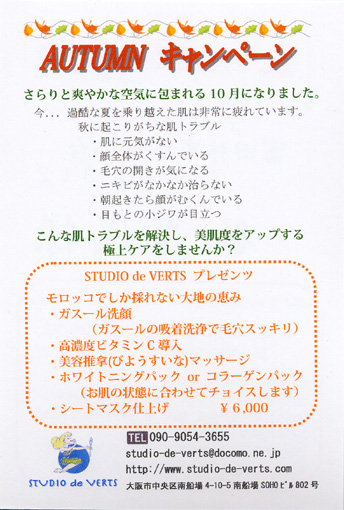 AUTUMN キャンペーン
さらりと爽やかな空気に包まれる10月になりました。
今... 過酷な夏を乗り越えた肌は非常に疲れています。
秋に起こりがちな肌トラブル
・肌に元気がない
・顔全体がくすんでいる
・毛穴の開きが気になる
・ニキビがなかなか治らない
・朝起きたら顔がむくんでいる
・目もとの小ジワが目立つ
こんな肌トラブルを解決し、美肌度をアップする
極上ケアをしませんか？
STUDIO de VERTS プレゼンツ
モロッコでしか採れない大地の恵み
・ガスール洗顔
（ガスールの吸着洗浄で毛穴スッキリ）
・高濃度ビタミンC導入
・美容推拿(びようすいな)マッサージ
・ホワイトニングパック or コラーゲンパック
（お肌の状態に合わせてチョイスします）
・シートマスク仕上げ ￥6,000
TEL 090-9054-3655
studio-de-verts@docomo.ne.jp
http://www.studio-de-verts.com
STUDIO de VERTS
大阪市中央区南船場4-10-5 南船場SOHOビル802号